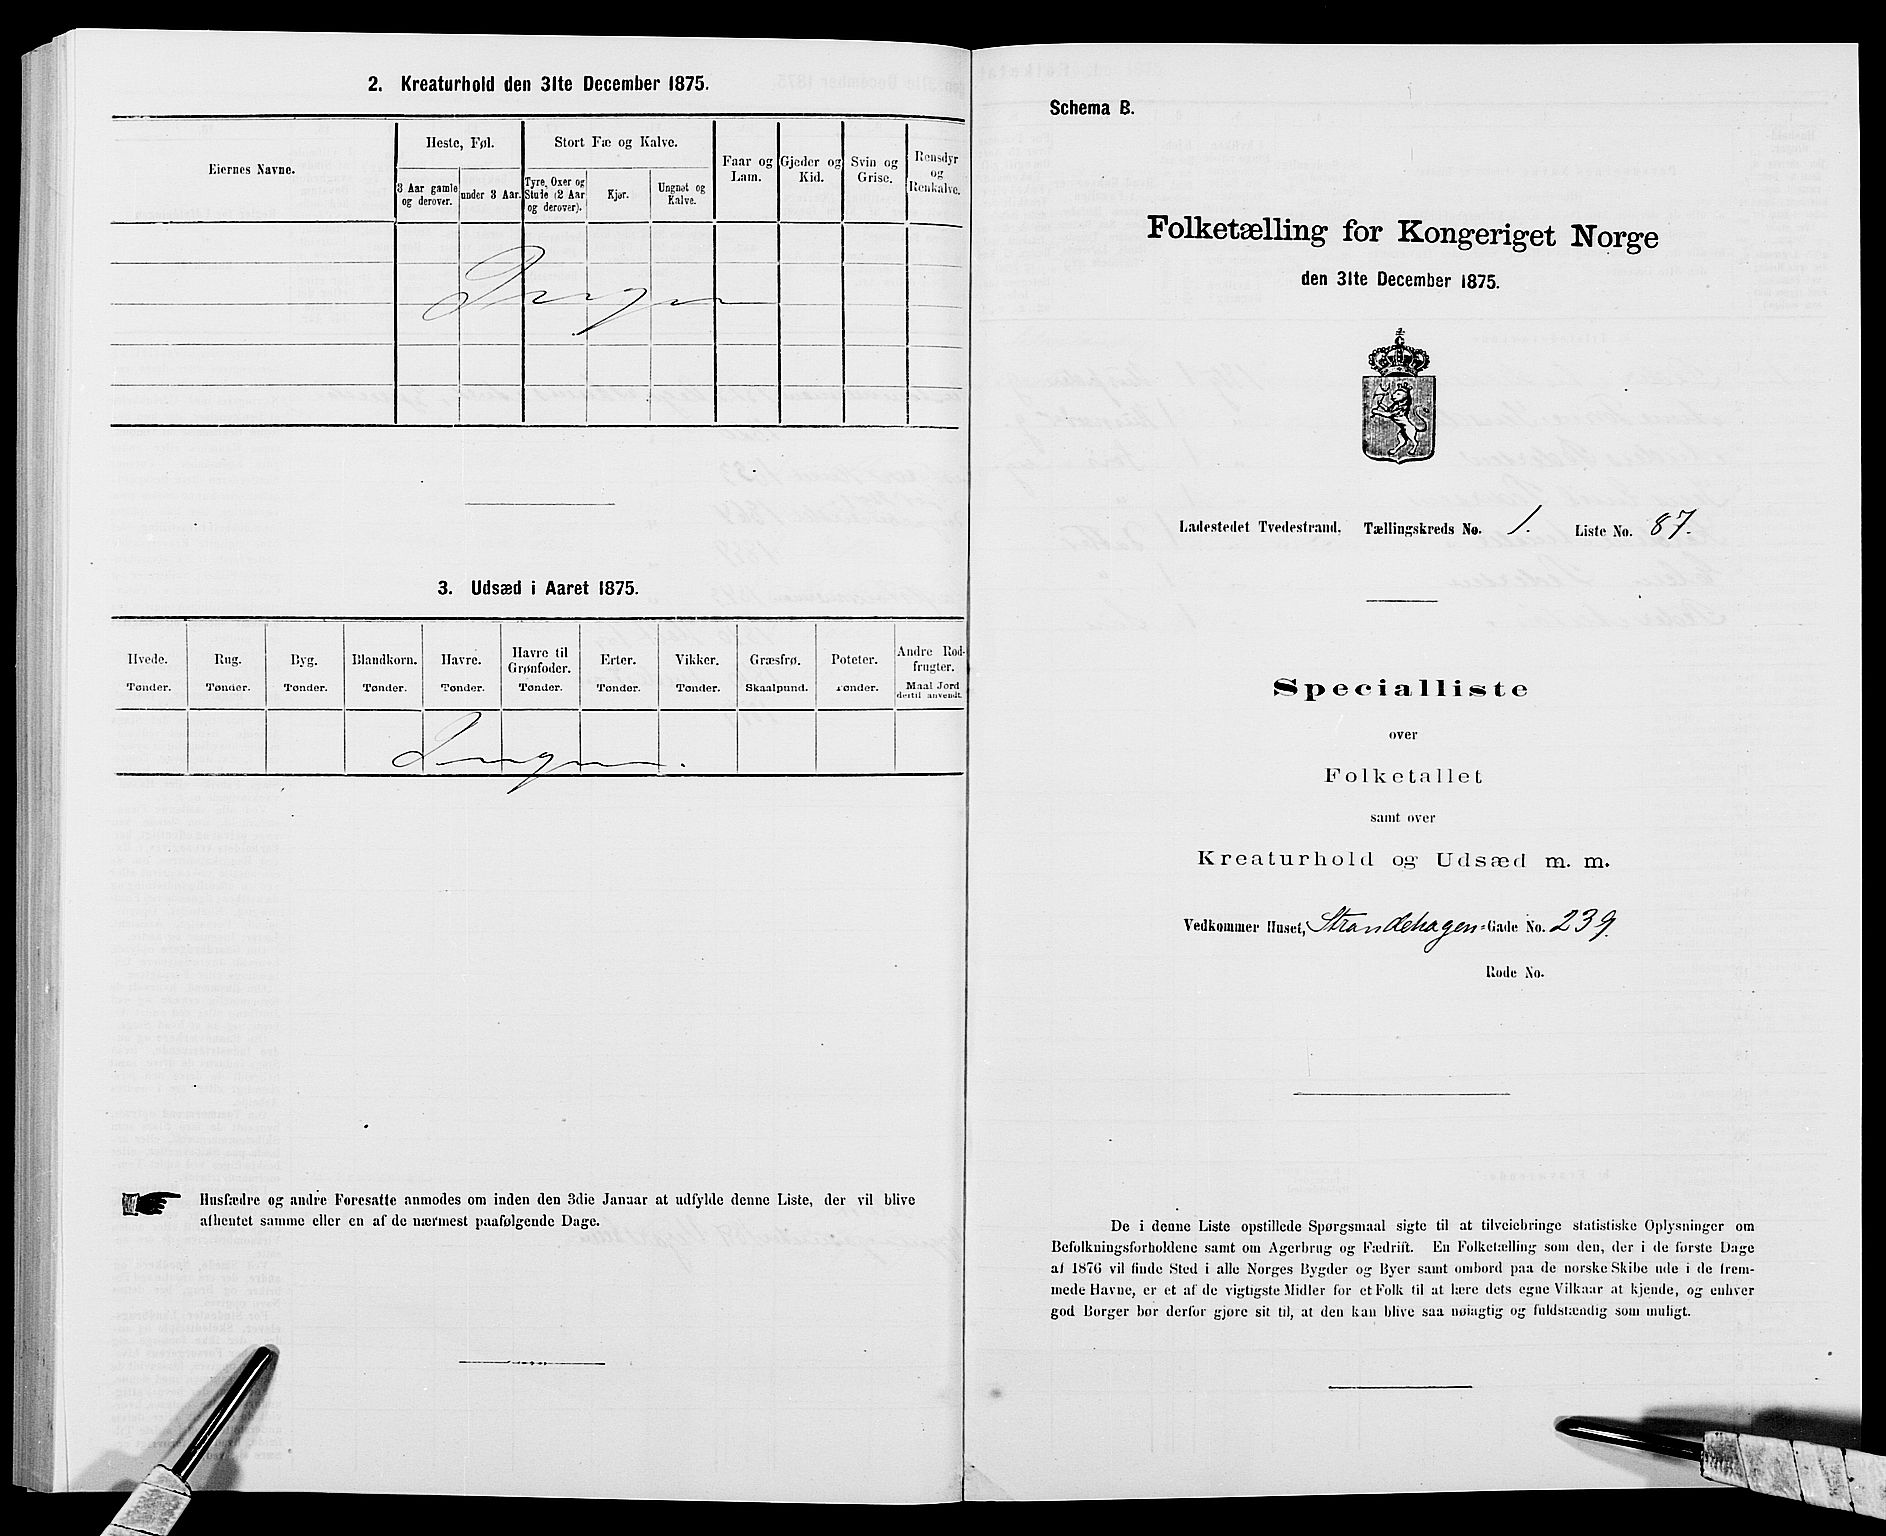 2. Kreaturhold den 31te December 1875.
Eiernes Navne.
Heste, Føl.
Stort Fæ og Kalve.
Faar og Lam.
Gjeder og Kid.
Svin og Grise.
Rensdyr og Renkalve.
3 Aar gamle og derover.
under 3 Aar.
Tyre, Oxer og Stude (2 Aar og derover).
Kjør.
Ungnøt og Kalve.
Ingen
3. Udsæd i Aaret 1875.
Hvede. Rug. Byg. Blandkorn. Havre. Havre til Grønfoder. Erter. Vikker. Græsfrø. Poteter. Andre Rodfrugter.
Tønder. Tønder. Tønder. Tønder. Tønder. Tønder. Tønder. Tønder. Skaalpund. Tønder. Maal Jord dertil anvendt.
Ingen.
Husfædre og andre Foresatte anmodes om inden den 3die Januar at udfylde denne Liste, der vil blive
afhentet samme eller en af de nærmest paafølgende Dage.
Schema B.
Folketælling for Kongeriget Norge
den 31te December 1875.
Ladestedet Tvedestrand. Tællingskreds No. 1. Liste No. 87.
Specialliste
over
Folketallet
samt over
Kreaturhold og Udsæd m. m.
Vedkommer Huset, Strandehagen-Gade No. 239.
Rode No.
De i denne Liste opstillede Spørgsmaal sigte til at tilveiebringe statistiske Oplysninger om
Befolkningsforholdene samt om Agerbrug og Fædrift. En Folketælling som den, der i de første Dage
af 1876 vil finde Sted i alle Norges Bygder og Byer samt ombord paa de norske Skibe ude i de frem-
mede Havne, er et af de vigtigste Midler for et Folk til at lære dets egne Vilkaar at kjende, og enhver
god Borger bør derfor gjøre sit til, at den kan blive saa nøiagtig og fuldstændig som muligt.